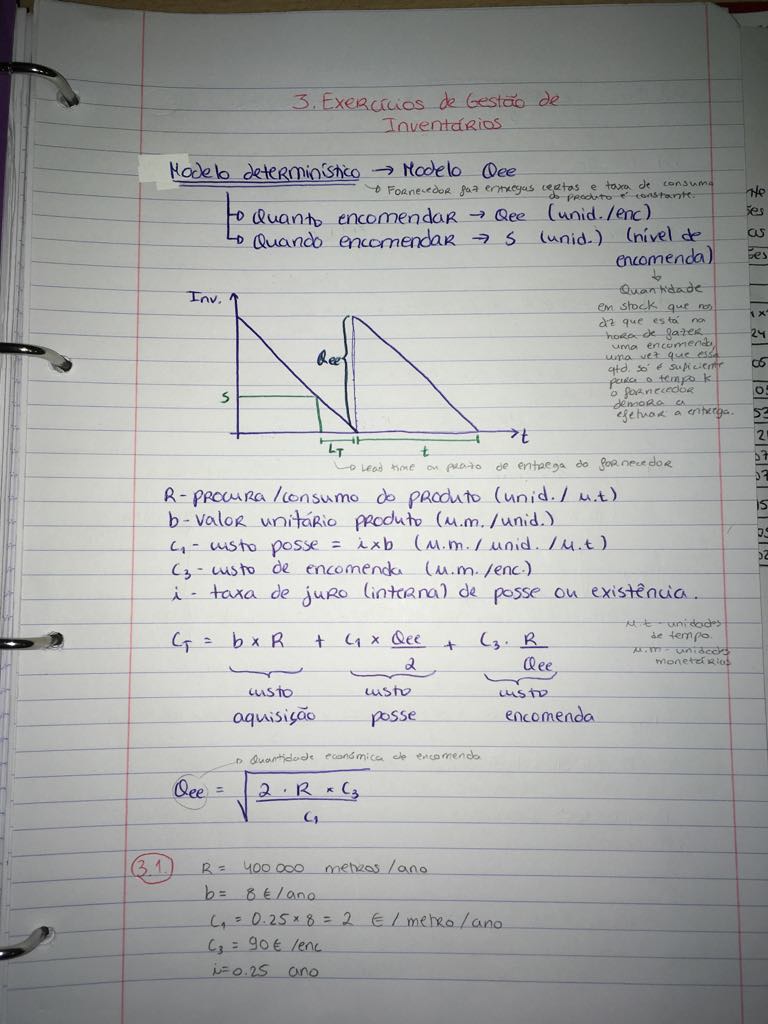 3. Exercícios de Gestão de
Inventários
Modelo determinístico → Modelo Qee
↳ Fornecedor faz entregas certas e taxa de consumo
do produto é constante.
↳ Quanto encomendar → Qee (unid./enc)
↳ Quando encomendar → S (unid.) (nível de
encomenda)
↓
Quantidade
em stock que nos
diz que está na
hora de fazer
uma encomenda,
uma vez que essa
qtd. só é suficiente
para o tempo k
o fornecedor
demora a
efetuar a entrega.
Inv.
Qee
S
LT
t
t
↳ Lead time ou prazo de entrega do fornecedor
R - procura/consumo do produto (unid./u.t)
b - valor unitário produto (u.m./unid.)
C₁ - custo posse = i×b (u.m./unid./u.t)
C₃ - custo de encomenda (u.m./enc.)
i - taxa de juro (interna) de posse ou existência.
u.t - unidades
de tempo.
u.m - unidades
monetários
CT = b × R + C₁ × Qee/2 + C₃ · R/Qee
custo custo custo
aquisição posse encomenda
↳ Quantidade económica de encomenda
Qee = √(2 · R × C₃ / C₁)
3.1. R = 400 000 metros/ano
b = 8 €/ano
C₁ = 0.25 × 8 = 2 €/metro/ano
C₃ = 90 €/enc
i = 0.25 ano